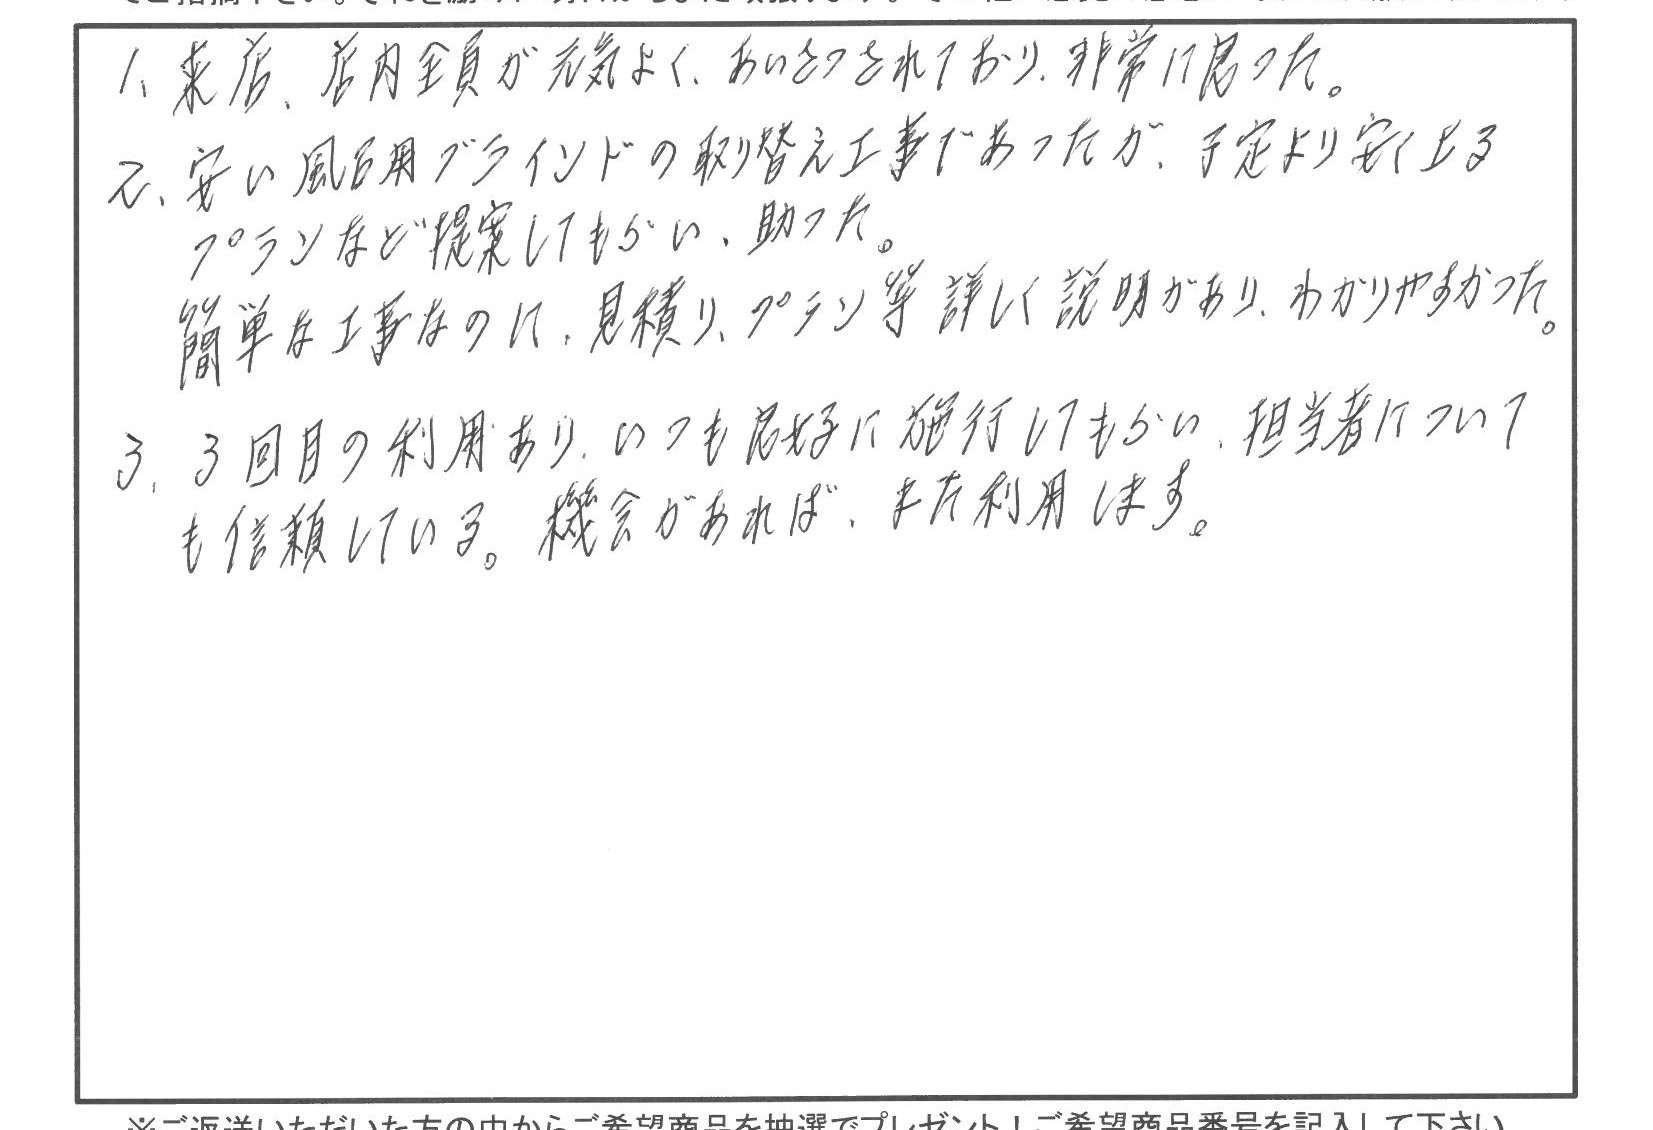 1、来店、店内全員が元気よく、あいさつをされており、非常に良かった。
2、安い風呂用ブラインドの取り替え工事であったが、予定より安く上る
プランなど提案してもらい、助った。
簡単な工事なのに、見積り、プラン等詳しく説明があり、わかりやすかった。
3、3回目の利用あり、いつも良好に施行してもらい、担当者について
も信頼している。機会があれば、また利用します。
※ご返送いただいた方の中からご希望商品を抽選でプレゼント！ご希望商品番号を記入して下さい